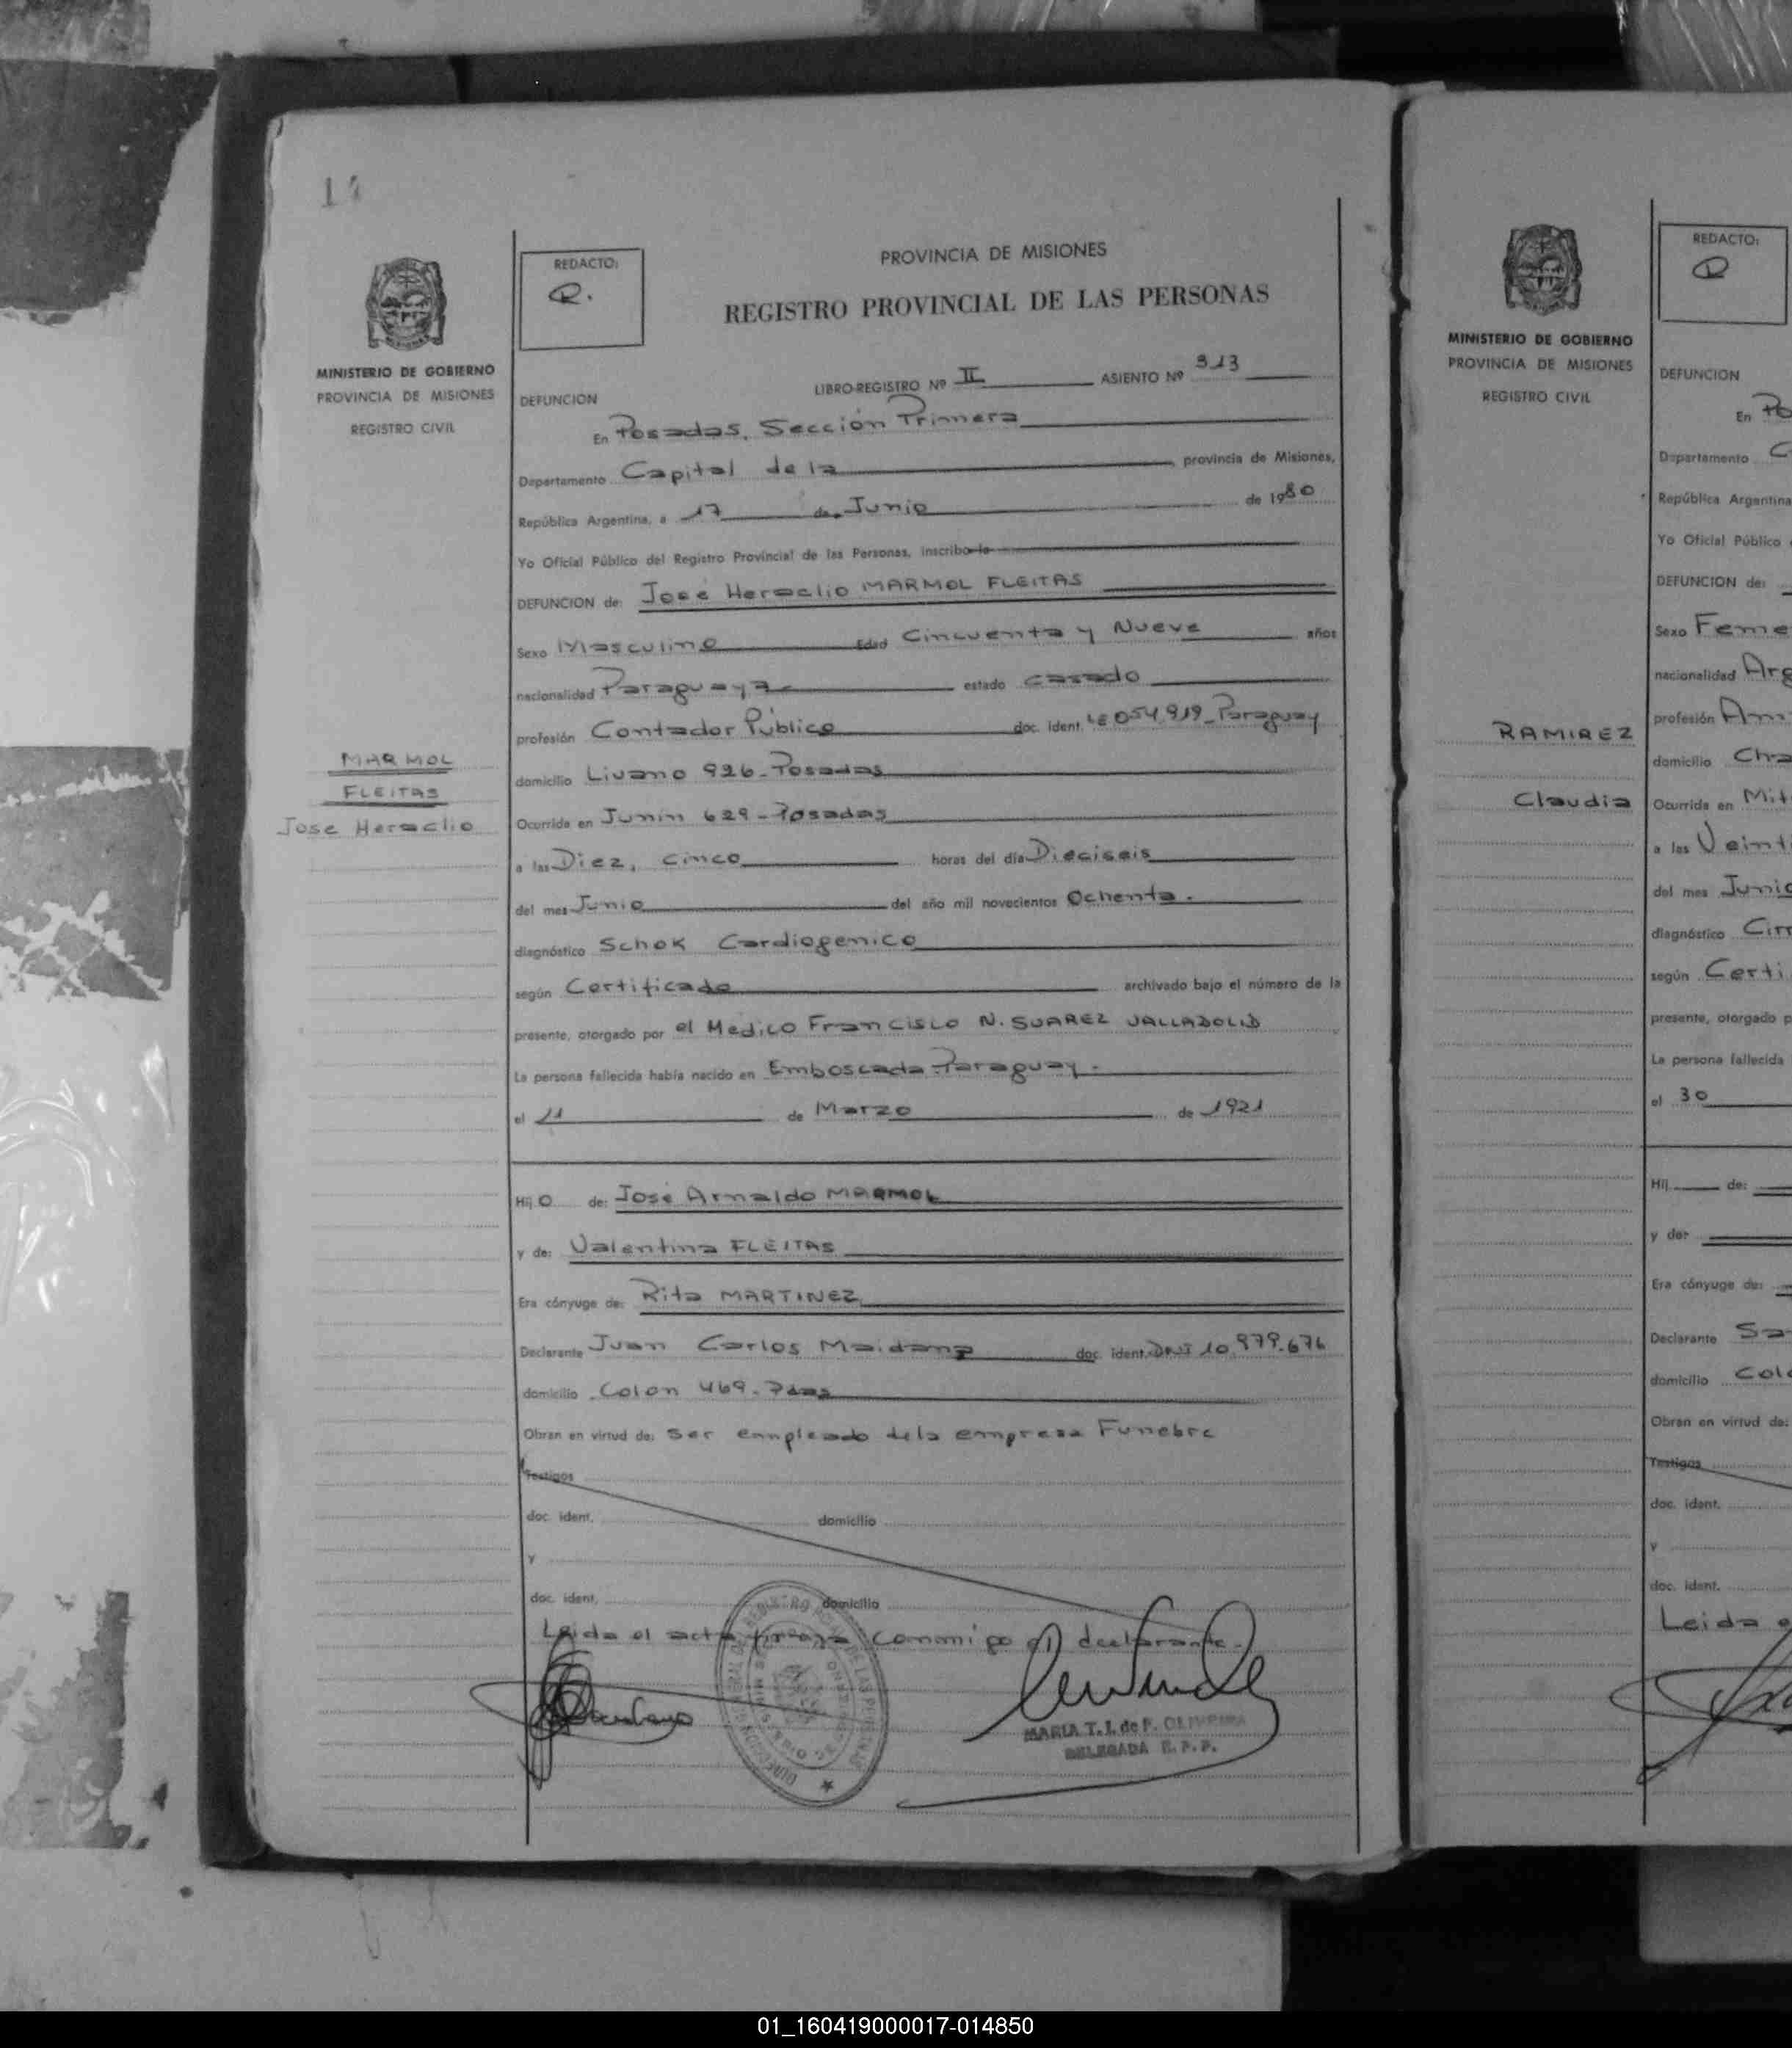 MINISTERIO DE GOBIERNO
PROVINCIA DE MISIONES
REGISTRO CIVIL
MARMOL
FLEITAS
Jose Heraclio
REDACTO:
PROVINCIA DE MISIONES
REGISTRO PROVINCIAL DE LAS PERSONAS
LIBRO-REGISTRO Nº II ASIENTO Nº 313
DEFUNCION
En Posadas, Sección Primera
Departamento Capital de la provincia de Misiones,
República Argentina, a 17 de Junio de 1980
Yo Oficial Público del Registro Provincial de las Personas, inscribo la
DEFUNCION de: José Heraclio MARMOL FLEITAS
Sexo Masculino Edad Cincuenta y Nueve años
nacionalidad Paraguaya estado casado
profesión Contador Público doc. ident. LE 054.919_Paraguay
domicilio 926_Posadas
Ocurrida en Junin 629_Posadas
a las Diez, cinco horas del día Dieciseis
del mes Junio del año mil novecientos Ochenta.
diagnóstico Schok Cardiogenico
según Certificado archivado bajo el número de la
presente, otorgado por el Medico Francisco N. SUAREZ VALLADOLID
La persona fallecida había nacido en Emboscada Paraguay.
el 11 de Marzo de 1921
Hijo de: José Arnaldo MARMOL
y de: Valentina FLEITAS
Era cónyuge de: Rita MARTINEZ
Declarante Juan Carlos Maidana doc. ident. DNI 10.979.676
domicilio Colon 469. Pdas
Obran en virtud de: ser empleado de la empresa Funebre
Testigos
doc. ident. domicilio
y
doc. ident. domicilio
Leida el acta firman conmigo el declarante.
MARIA T. I. de F. OLIVEIRA
DELEGADA R. P. P.
MINISTERIO DE GOBIERNO
PROVINCIA DE MISIONES
REGISTRO CIVIL
RAMIREZ
Claudia
REDACTO:
DEFUNCION
En Po
Departamento C
República Argentina
Yo Oficial Público
DEFUNCION de:
Sexo Feme
nacionalidad Arg
profesión
domicilio Cha
Ocurrida en Mit
a las Veinti
del mes Junio
diagnóstico Cirr
según Certi
presente, otorgado p
La persona fallecida
el 30
Hij de:
y de:
Era cónyuge de:
Declarante Sa
domicilio Colo
Obran en virtud de:
Testigos
doc. ident.
y
doc. ident.
Leida
01_160419000017-014850